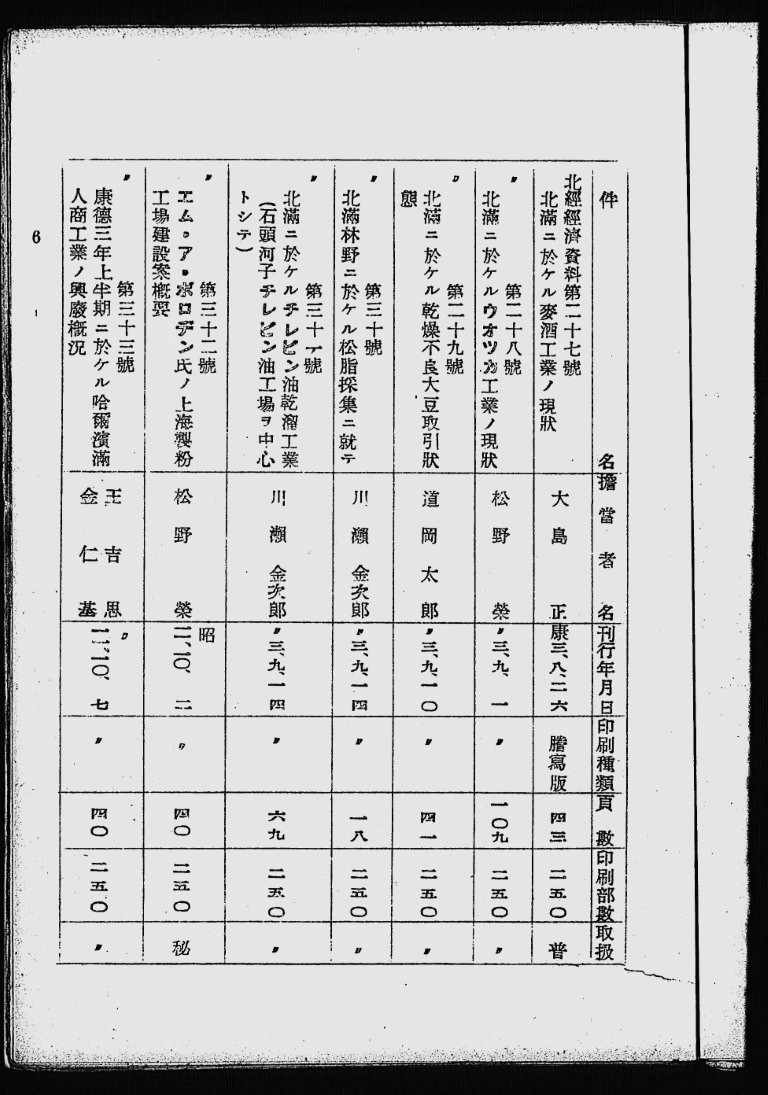 件　名　擔當者名　刊行年月日　印刷種類　頁數　印刷部數　取扱
北經經濟資料第二十七號
北滿ニ於ケル麥酒工業ノ現狀　大島正　康三、八、二六　謄寫版　四三　二五〇　普
〃　第二十八號
北滿ニ於ケルウオツカ工業ノ現狀　松野榮　〃三、九、一　〃　一〇九　二五〇　〃
〃　第二十九號
北滿ニ於ケル乾燥不良大豆取引狀
態　道岡太郎　〃三、九、一〇　〃　四一　二五〇　〃
〃　第三十號
北滿林野ニ於ケル松脂採集ニ就テ　川瀨金次郎　〃三、九、一四　〃　一八　二五〇　〃
〃　第三十一號
北滿ニ於ケルテレビン油乾溜工業
(石頭河子テレビン油工場ヲ中心
トシテ)　川瀨金次郎　〃三、九、一四　〃　六九　二五〇　〃
〃　第三十二號
エム・ア・ボロデン氏ノ上海製粉
工場建設案概要　松野榮　昭一一、一〇、二　〃　四〇　二五〇　秘
〃　第三十三號
康德三年上半期ニ於ケル哈爾濱滿
人商工業ノ興廢概況　王吉思　金仁基　〃一一、一〇、七　〃　四〇　二五〇　〃
6